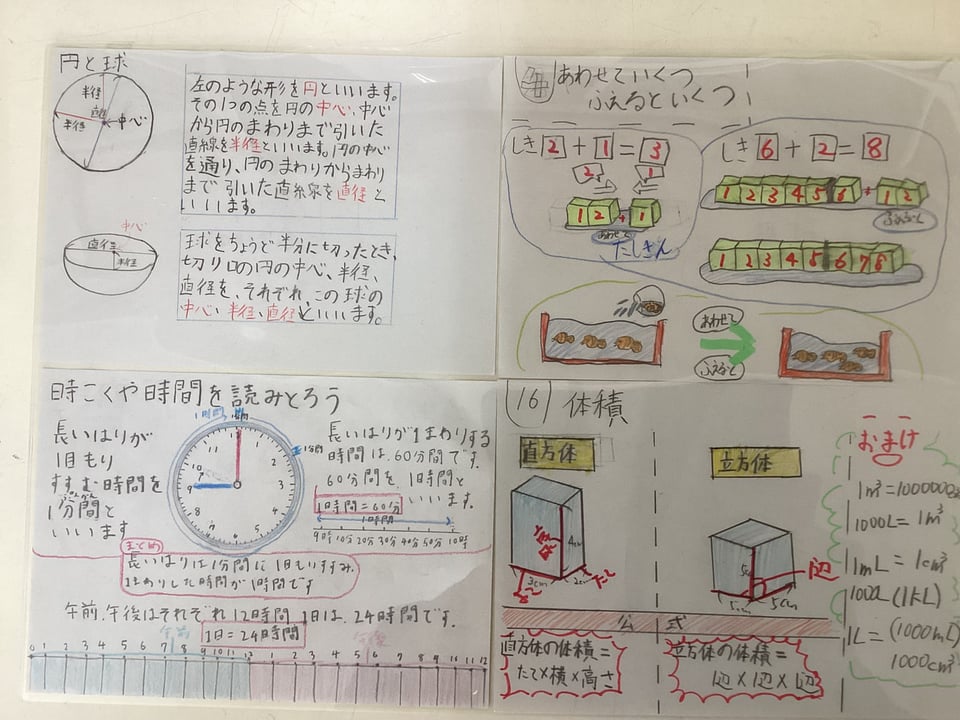 円と球
半径
直径
半径
中心
左のような形を円といいます。
その1つの点を円の中心、中心
から円のまわりまで引いた
直線を半径といいます。円の中心
を通り、円のまわりからまわり
まで引いた直線を直径と
いいます。
中心
直径
半径
球をちょうど半分に切ったとき、
切り口の円の中心、半径、
直径を、それぞれ、この球の
中心、半径、直径といいます。
あわせていくつ
ふえるといくつ
しき 2 + 1 = 3
2 1
1 2 + 1
あわせて
たしさん
しき 6 + 2 = 8
1 2 3 4 5 6 + 1 2
ふえると
1 2 3 4 5 6 7 8
あわせて
ふえると
時こくや時間を読みとろう
長いはりが
1目もり
すすむ時間を
1分間と
いいます
1時間
1分間
12 1 2 3 4 5 6 7 8 9 10 11
長いはりが1まわりする
時間は、60分間です。
60分間を、1時間と
いいます。
1時間=60分
1時間
9時 10分 20分 30分 40分 50分 10時
まとめ
長いはりは1分間に1目もりすすみ、
1まわりした時間が1時間です
午前、午後はそれぞれ12時間、1日は、24時間です。
1日=24時間
午前 午後
0 1 2 3 4 5 6 7 8 9 10 11 12 1 2 3 4 5 6 7 8 9 10 11 12
16 体積
直方体
高さ
4cm
3cm
2cm
よこ
たて
立方体
5cm
5cm
5cm
1辺
公式
直方体の体積=
たて×横×高さ
立方体の体積=
1辺×1辺×1辺
おまけ
1000L=1m³
1mL=1cm³
1L=(1000mL)
1000cm³